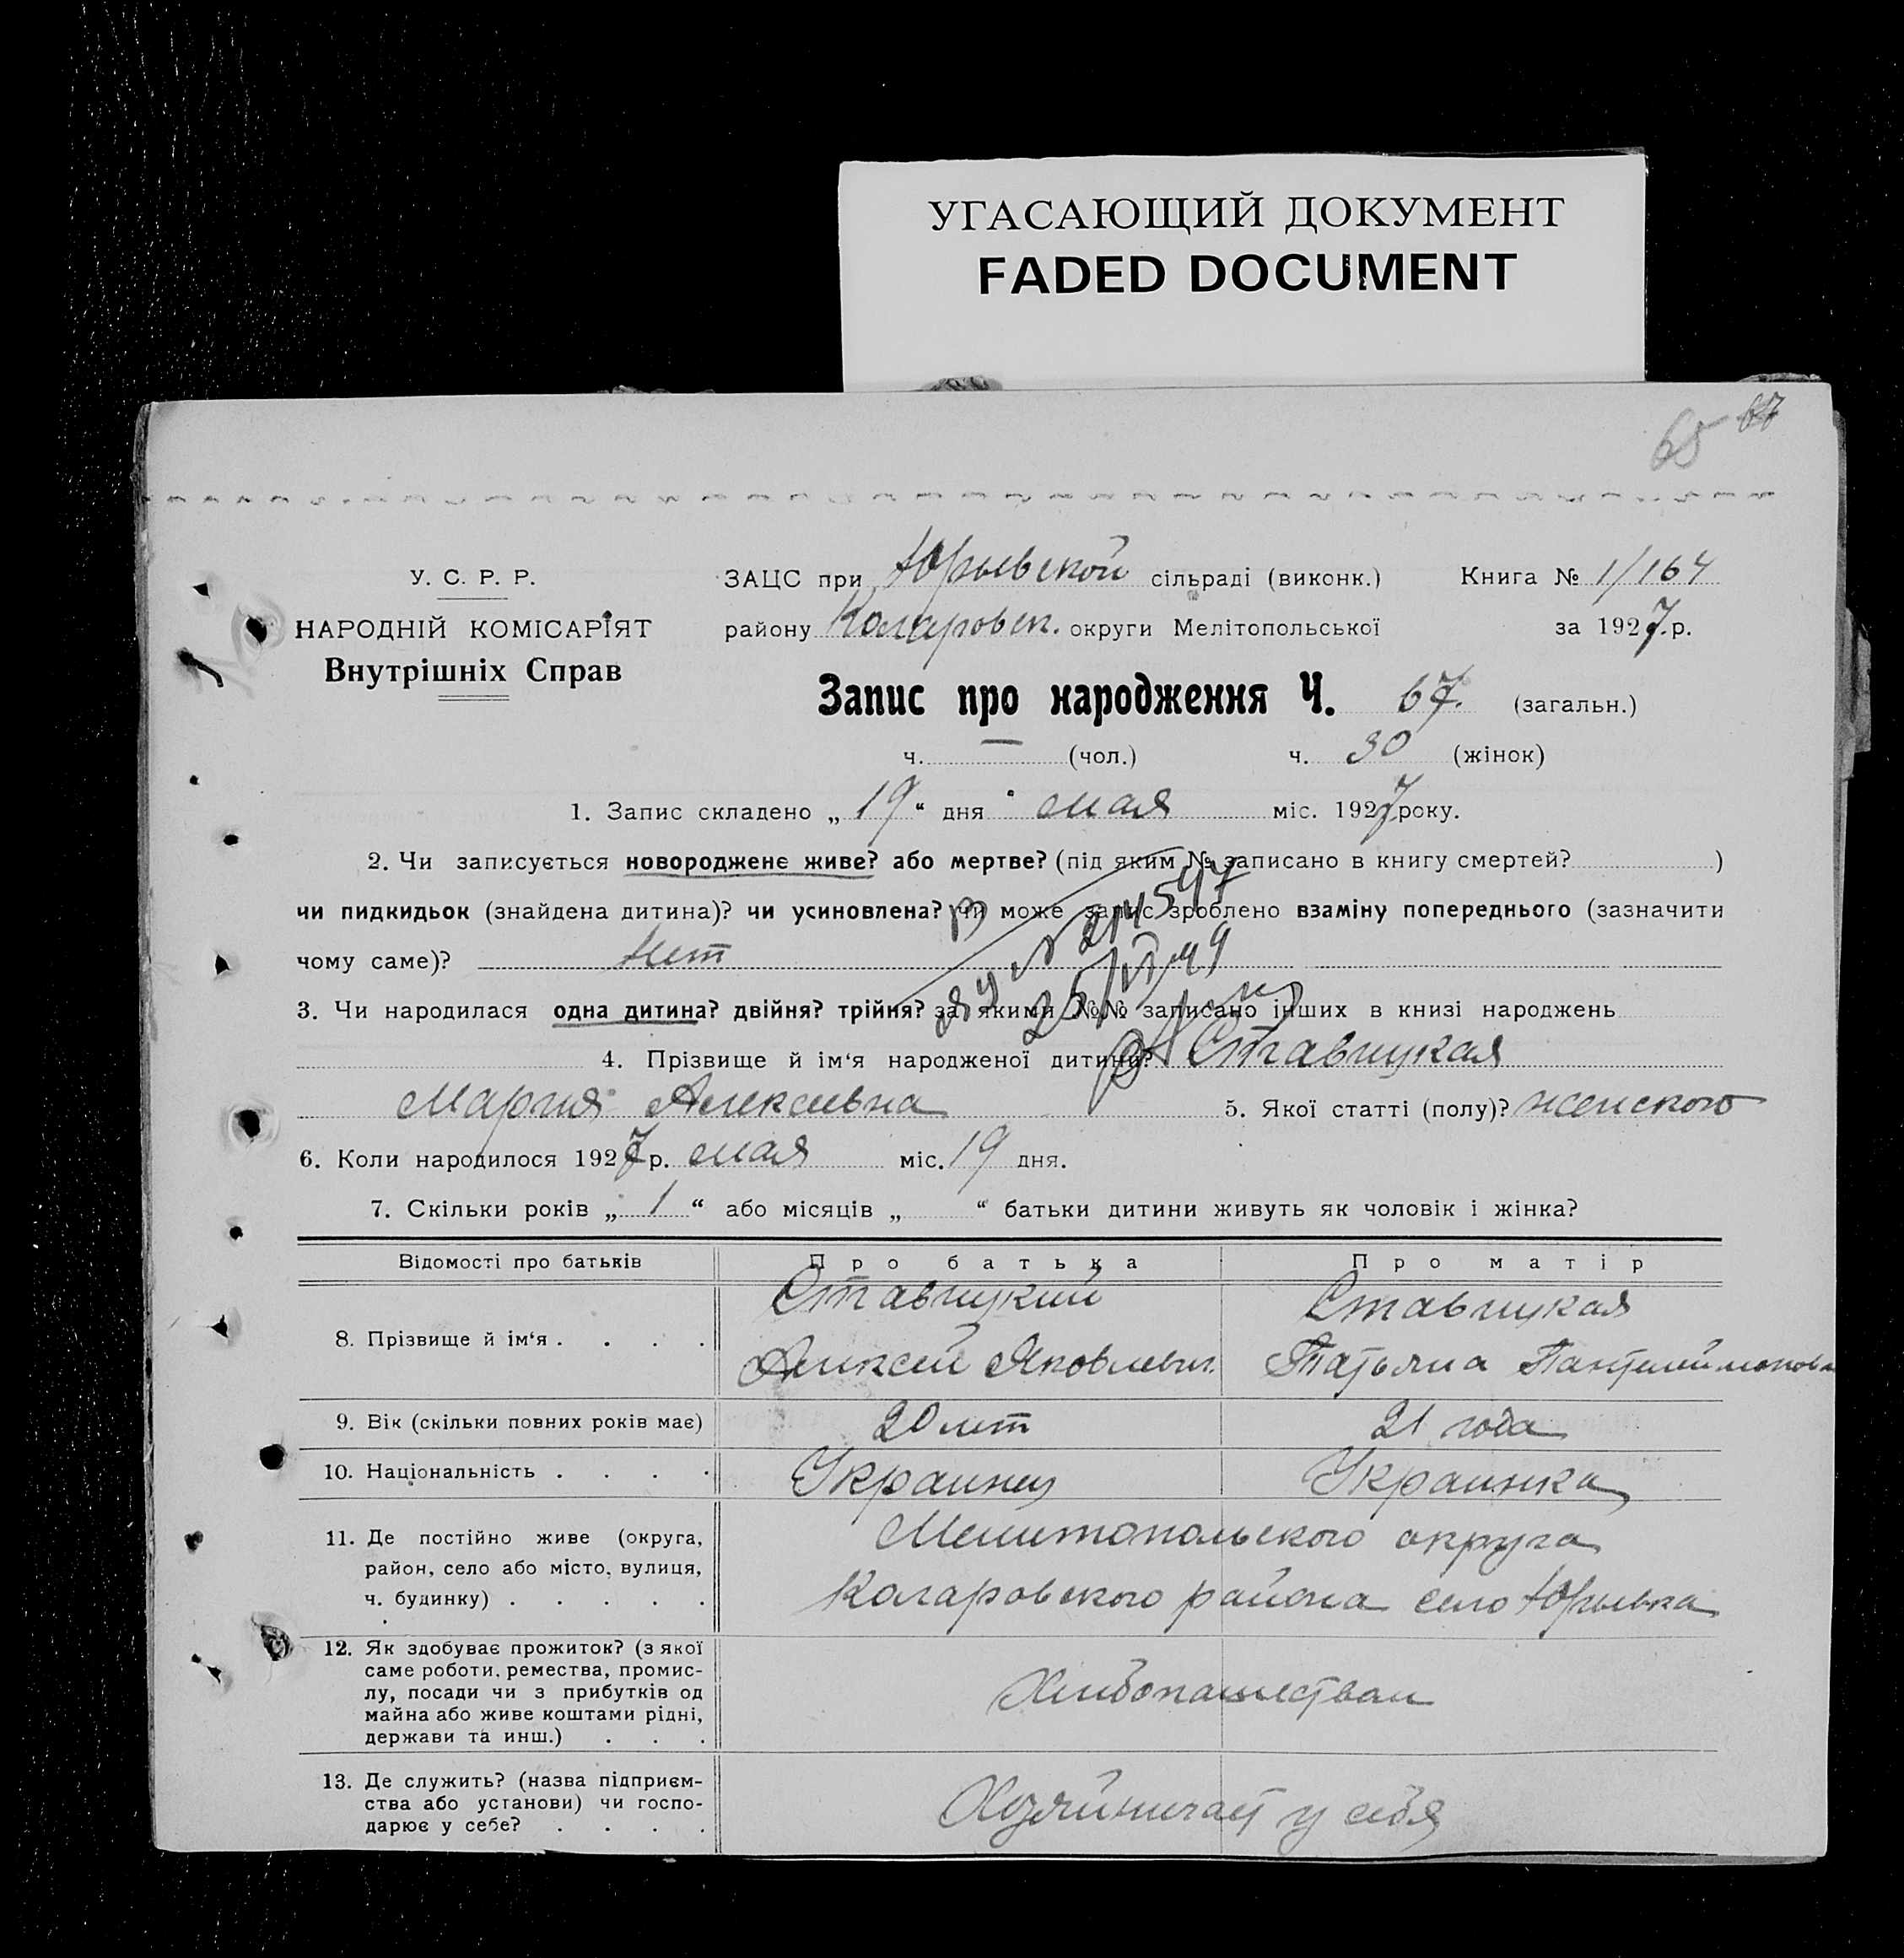 УГАСАЮЩИЙ ДОКУМЕНТ
FADED DOCUMENT
65 67
У. С. Р. Р.
НАРОДНІЙ КОМІСАРІЯТ
Внутрішніх Справ
ЗАЦС при Юрьевской сільраді (виконк.) Книга № 1/164
району Коларовск. округи Мелітопольської за 1927 р.
Запис про народження Ч. 67. (загальн.)
ч. — (чол.) ч. 30 (жінок)
1. Запис складено „ 19 “ дня мая міс. 1927 року.
2. Чи записується новороджене живе? або мертве? (під яким № записано в книгу смертей? )
чи пидкидьок (знайдена дитина)? чи усиновлена? чи може запис зроблено взаміну попереднього (зазначити
чому саме)? Нет
3. Чи народилася одна дитина? двійня? трійня? за якими №№ записано інших в книзі народжень
4. Прізвище й ім‘я народженої дитини? Ставицкая
Мария Алексеевна 5. Якої статті (полу)? женского
6. Коли народилося 1927 р. мая міс. 19 дня.
7. Скільки років „ 1 “ або місяців „ “ батьки дитини живуть як чоловік і жінка?
Відомості про батьків Про батька Про матір
8. Прізвище й ім‘я . . . . Ставицкий Алексей Яковлевич. Ставицкая Татьяна Пантелеймоновн
9. Вік (скільки повних років має) 20 лет 21 года
10. Національність . . . . Украинец Украинка
11. Де постійно живе (округа, Мелитопольского округа
район, село або місто, вулиця, Коларовского района село Юрьевка
ч. будинку) . . . . .
12. Як здобуває прожиток? (з якої
саме роботи, ремества, промис-
лу, посади чи з прибутків од Хлебопашеством
майна або живе коштами рідні,
держави та инш.) . . .
13. Де служить? (назва підприєм-
ства або установи) чи госпо- Хозяйничает у себя
дарює у себе? . . . .